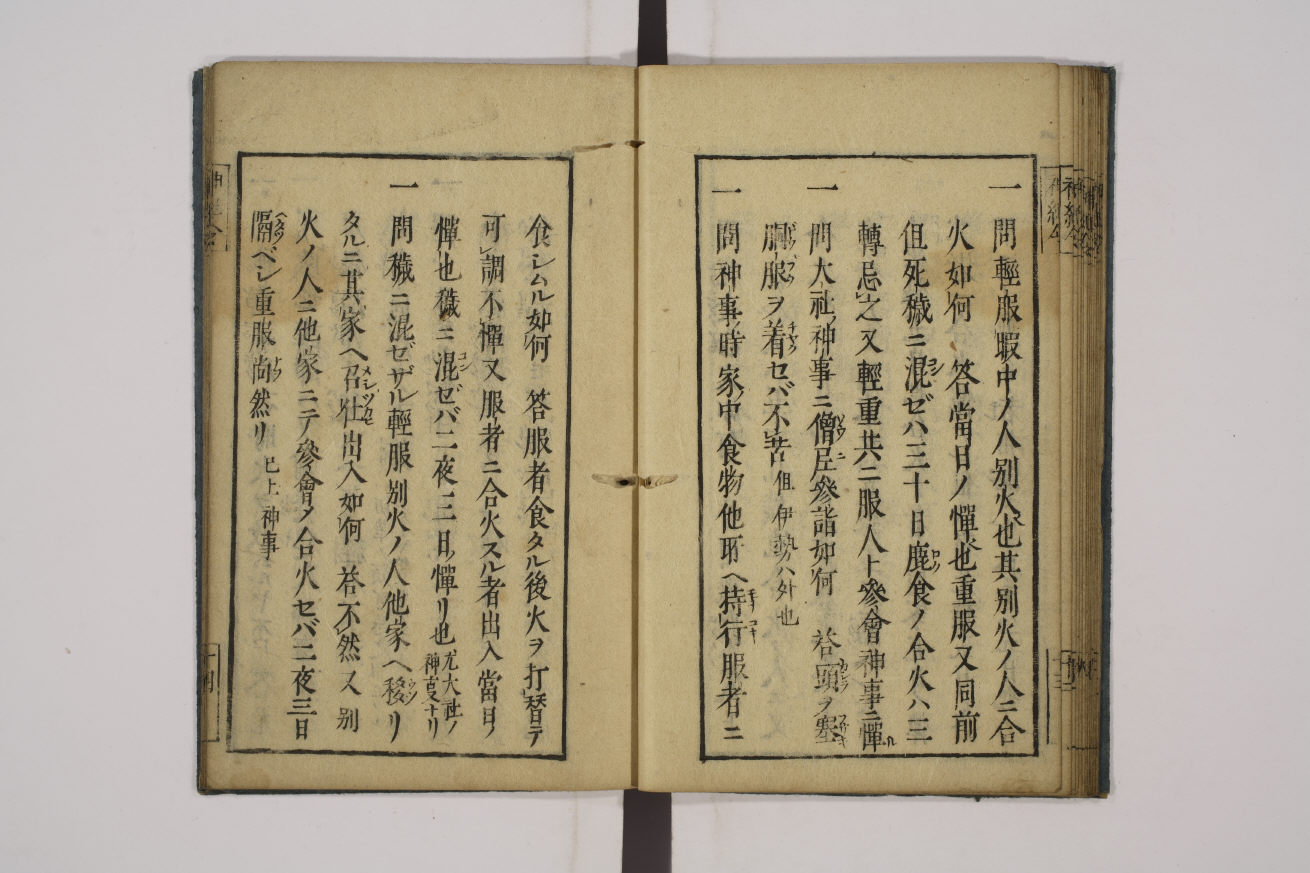 一問輕服暇中ノ人別火也其別火ノ人ニ合
火如何 答當日ノ憚也重服又同前
但死穢ニ混ゼハ三十日鹿食ノ合火ハ三
轉忌之又輕重共ニ服人ト參會神事ニ憚
一問大社神事ニ僧尼參詣如何 答頭ヲ塞
服ヲ着セバ不苦但伊勢ハ外也
一問神事ノ時家中食物他所ヘ持行服者ニ
食シムル如何 答服者食タル後火ヲ打替テ
可調不憚又服者ニ合火スル者出入當日ノ
憚也穢ニ混ゼバ二夜三日ノ憚リ也尤大社ノ神事ナリ
一問穢ニ混ゼザル輕服別火ノ人他家ヘ移リ
タルニ其家ヘ召仕出入如何 答不然又別
火ノ人ニ他家ニテ參會ノ合火セバ二夜三日
隔ベシ重服尚然リ 已上神事